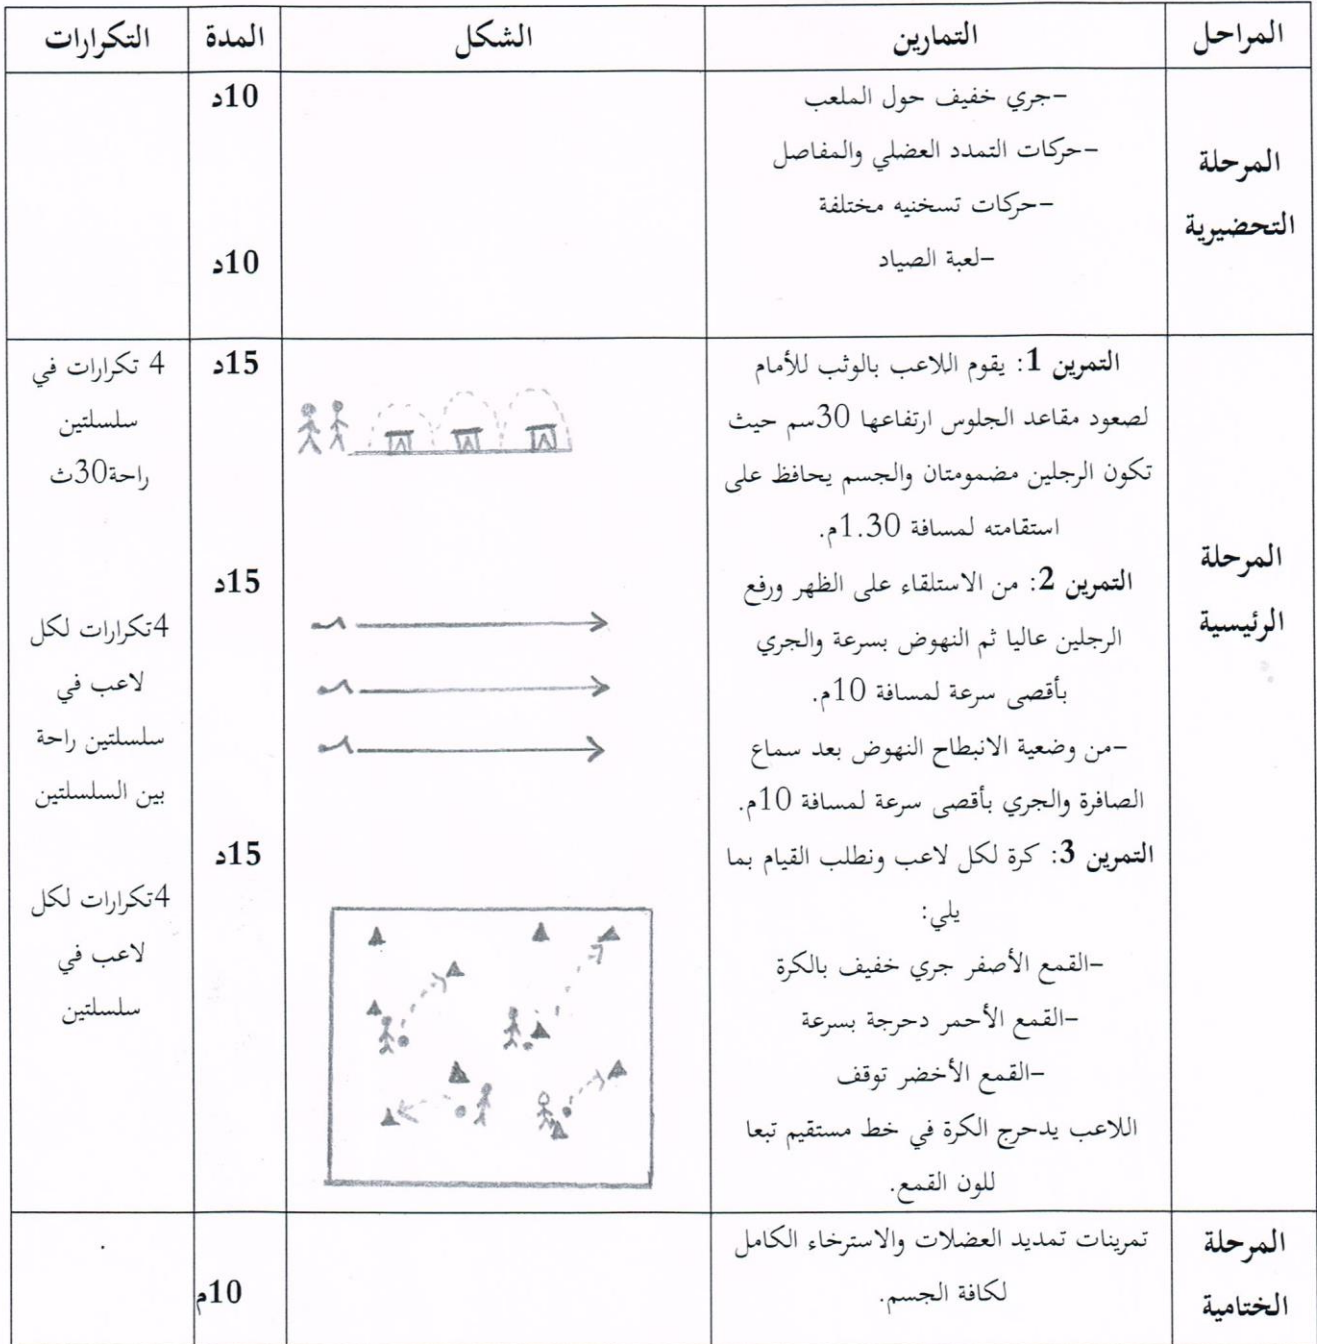 المراحل
التمارين
الشكل
المدة
التكرارات
المرحلة
التحضيرية
-جري خفيف حول الملعب
-حركات التمدد العضلي والمفاصل
-حركات تسخنيه مختلفة
-لعبة الصياد
10د
10د
المرحلة
الرئيسية
التمرين 1: يقوم اللاعب بالوثب للأمام
لصعود مقاعد الجلوس ارتفاعها 30سم حيث
تكون الرجلين مضمومتان والجسم يحافظ على
استقامته لمسافة 1.30م.
التمرين 2: من الاستلقاء على الظهر ورفع
الرجلين عاليا ثم النهوض بسرعة والجري
بأقصى سرعة لمسافة 10م.
-من وضعية الانبطاح النهوض بعد سماع
الصافرة والجري بأقصى سرعة لمسافة 10م.
التمرين 3: كرة لكل لاعب ونطلب القيام بما
يلي:
-القمع الأصفر جري خفيف بالكرة
-القمع الأحمر دحرجة بسرعة
-القمع الأخضر توقف
اللاعب يدحرج الكرة في خط مستقيم تبعا
للون القمع.
15د
15د
15د
4 تكرارات في
سلسلتين
راحة30ث
4تكرارات لكل
لاعب في
سلسلتين راحة
بين السلسلتين
4تكرارات لكل
لاعب في
سلسلتين
المرحلة
الختامية
تمرينات تمديد العضلات والاسترخاء الكامل
لكافة الجسم.
10م